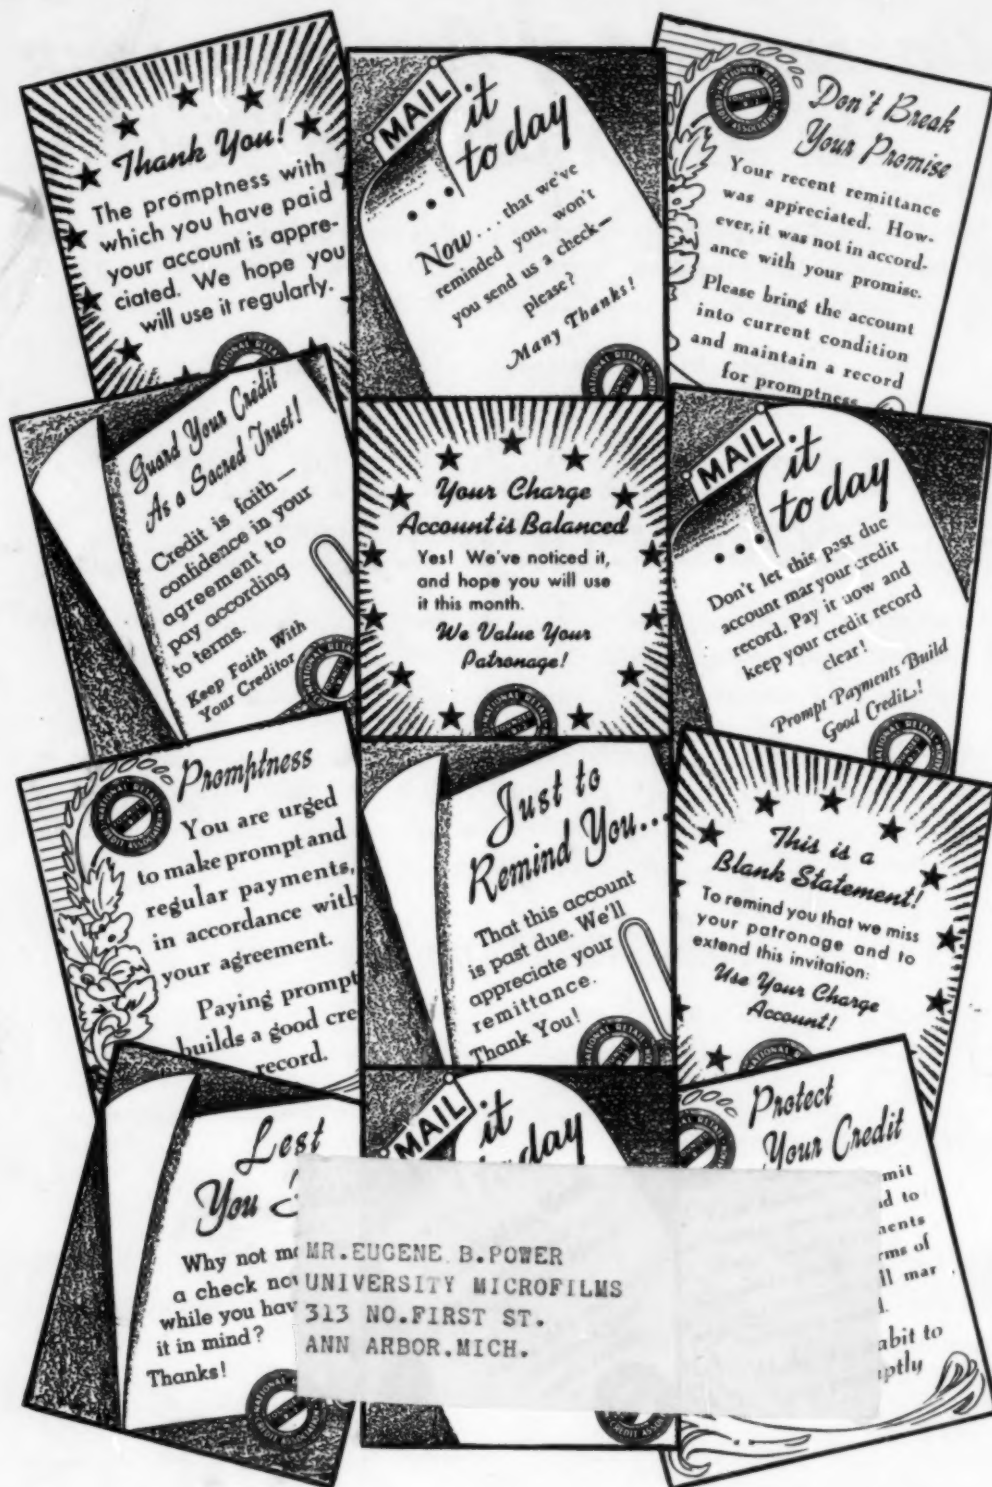 Thank You!
The promptness with
which you have paid
your account is appre-
ciated. We hope you
will use it regularly.
MAIL
it
today
Now... that we've
reminded you, won't
you send us a check—
please?
Many Thanks!
NATIONAL RETAIL
CREDIT ASSOCIATION
Don't Break
Your Promise
Your recent remittance
was appreciated. How-
ever, it was not in accord-
ance with your promise.
Please bring the account
into current condition
and maintain a record
for promptness
Guard Your Credit
As a Sacred Trust!
Credit is faith—
confidence in your
agreement to
pay according
to terms.
Keep Faith With
Your Creditor
Your Charge
Account is Balanced
Yes! We've noticed it,
and hope you will use
it this month.
We Value Your
Patronage!
MAIL
it
today
Don't let this past due
account mar your credit
record. Pay it now and
keep your credit record
clear!
Prompt Payments Build
Good Credit!
Promptness
You are urged
to make prompt and
regular payments,
in accordance with
your agreement.
Paying prompt
builds a good cre
record.
Just to
Remind You...
That this account
is past due. We'll
appreciate your
remittance.
Thank You!
This is a
Blank Statement!
To remind you that we miss
your patronage and to
extend this invitation:
Use Your Charge
Account!
Lest
You
Why not m
a check no
while you hav
it in mind?
Thanks!
MAIL
it
day
Protect
Your Credit
mit
d to
ents
rms of
ll mar
abit to
ptly
MR.EUGENE B.POWER
UNIVERSITY MICROFILMS
313 NO.FIRST ST.
ANN ARBOR.MICH.